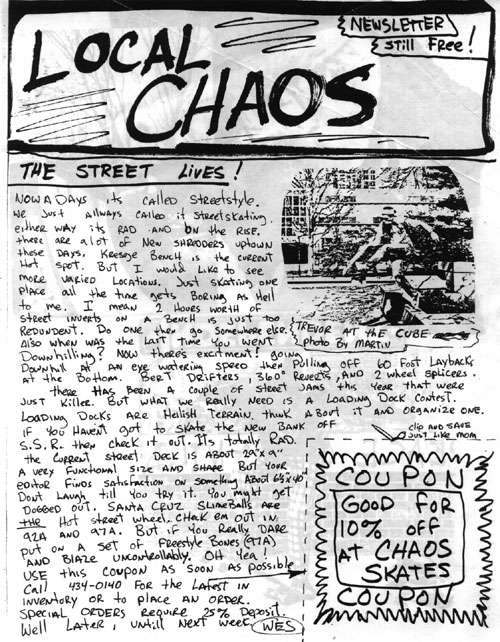 LOCAL
CHAOS
NEWSLETTER
Still Free!
THE STREET LIVES!
NOW A DAYS its CALLED STREETSTYLE.
We Just Allways CALLED it StreetSKating.
either WAY its RAD AND ON the RISE.
there ARE A lot of New SHREDDERS uptown
these DAYS. Kresge BENCH is the CURRENT
Hot spot. But I would Like to see
MORE VARIED LOCATIONS. Just skating one
PLACE all the time gets BORING AS Hell
to me. I mean 2 HOURS WORTH OF
Street inverts ON A BENCH is Just too
REDUNDENT. Do one then go Somewhere else.
Also when was the last time You WENT
DOWNHILLING? Now there's excitment! going
DOWNHILL at AN eye watering SPEED then Pulling off 60 Foot LAYBACKS
at the Bottom. BERT DRIFTERS, 360° Reverts, AND 2 wheel splicers.
there HAS BEEN A couple of STREET JAMS this YEAR that were
Just Killer. But WHAT we Really NEED is A LOADING Dock CONTEST.
LOADING DOCKS ARE Helish TERRAIN. think About it AND ORGANIZE ONE.
if You HAVENt got to SKATE the NEW BANK OFF
S.S.R. then check it out. It's totally RAD.
the CURRENT street DECK is ABOUT 29"x 9"
A very Functional SIZE AND SHAPE But YOUR
EDITOR FINDS SATISFACTION ON Something About
Dont Laugh till You try it. You might get
DOGGED OUT. SANTA CRUZ SLIMEBALLS ARE
the Hot street wheel. Check em out in
92A AND 97A. But if You Really DARE
put on A SET OF FREESTYLE BONES (97A)
AND BLAZE UNCONTROLLABLY. OH YEA!
USE this COUPON AS SOON AS possible
Call 434-0140 FOR the LATEST iN
INVENTORY OR to PLACE AN ORDER.
SPECIAL ORDERS REQUIRE 25% DEPOSIT.
Well Later, untill Next week WES
TREVOR AT the CUBE
photo By MARTIN
clip AND SAVE
Just Like mom
COUPON
GOOD FOR
10% OFF
AT CHAOS
SKATES
COUPON